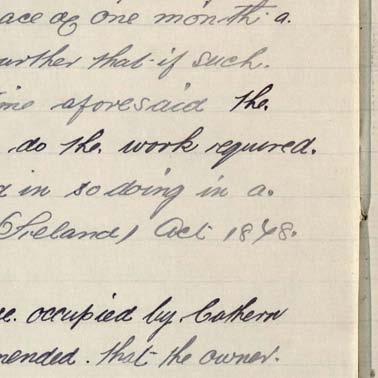 ace of one month a.
urther that if such.
me aforesaid the.
do the. work required.
d in so doing in a.
(Ireland) Act 1878.
e. occupied by Cathern
mended. that the owner.